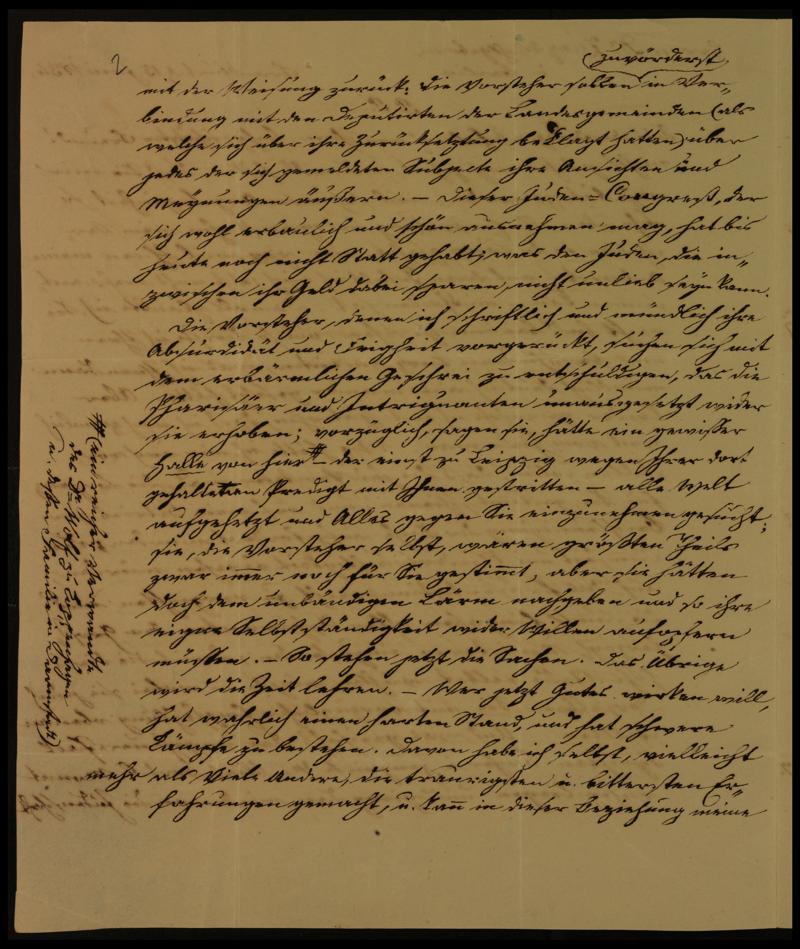 2
(zuvörderst
mit der Weisung zurück: die Vorsteher sollen in Ver-
bindung mit den Deputirten der Landesgemeinden (als
welche sich über ihre Zurücksetztung beklagt hatten) über
jedes der sich gemeldeten Subjecte ihre Ansichten und
Meynungen äußern. — Dieser Juden-Congreß, der
sich wohl erbaulich und schön ausnehmen mag, hat bis
heute noch nicht Statt gehabt; was den Juden, die in-
zwischen ihr Geld dabei sparen, nicht unlieb seyn kann.
Die Vorsteher, denen ich schriftlich und mündlich ihre
Absurdidät und Feigheit vorgerückt, suchen sich mit
dem erbärmlichen Geschrei zu entschuldigen, das die
Pharisäer und Intriguanten unausgesetzt wider
sie erhoben; vorzüglich, sagen sie, hätte ein gewisser
Halle von hier # — der einst zu Leipzig wegen Ihrer dort
gehaltenen Predigt mit Ihnen gestritten — alle Welt
aufgehetzt und Alles gegen Sie einzunehmen gesucht;
sie, die Vorsteher selbst, wären größten Theils
zwar immer noch für Sie gestimt, aber sie hätten
doch dem unbändigen Lärm nachgeben und so ihre
eigne Selbstständigkeit wider Willen aufopfern
müssen. — So stehen jetzt die Sachen. Das Übrige
wird die Zeit lehren. — Wer jetzt Gutes wirken will,
hat wahrlich einen harten Stand, und hat schwere
Kämpfe zu bestehen. Davon habe ich selbst, vielleicht
mehr als Viele Andere, die traurigsten u. bittersten Er-
fahrungen gemacht, u. kan in dieser Beziehung meine
# (ein reicher Verwandte
des Dr. Wolf zu Copenhagen
u. dessen Familie in Darmstadt)